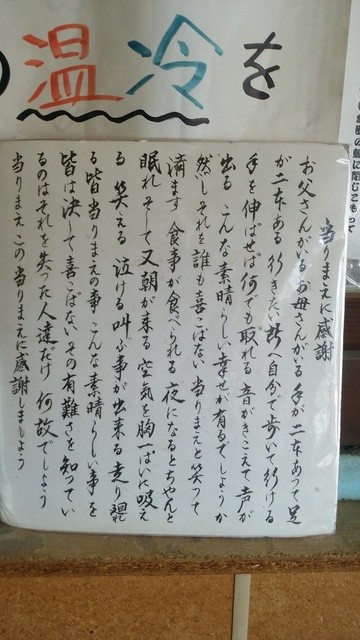 の温冷を
の鰻に閉じこもって
当りまえに感謝
お父さんがいるお母さんがいる手が二本あって足
が二本ある行きたい所へ自分で歩いて行ける
手を伸ばせば何でも取れる音がきこえて声が
出るこんな素晴らしい幸せが有るでしょうか
然しそれを誰も喜こばない当りまえと笑って
済ます食事が食べられる夜になるとちゃんと
眠れそして又朝が来る空気を胸一ぱいに吸え
る笑える泣ける叫ぶ事が出来る走り廻れ
る皆当りまえの事こんな素晴らしい事を
皆は決して喜こばないその有難さを知ってい
るのはそれを失った人達だけ何故でしょう
当りまえこの当りまえに感謝しましょう